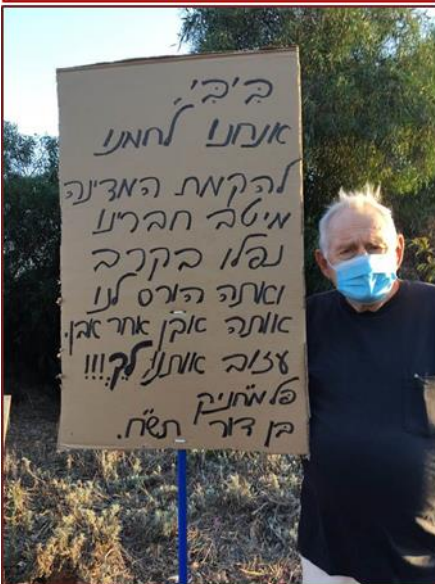 בִּיבִּי,
אנחנו לחמנו
להקמת המדינה
מיטב חברינו
נפלו בקרב
ואתה הורס לנו
אותה אבן אחר אבן.
עזוב אותנו לֵךְ!!!
פלמ"חניק
בן דור תש"ח.